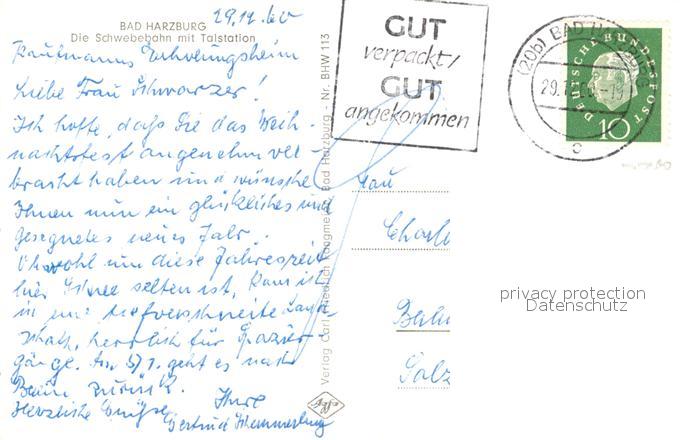 29.12.60
BAD HARZBURG
Die Schwebebahn mit Talstation
Kaufmanns Erholungsheim
Liebe Frau Schwarzer!
Ich hoffe, daß Sie das Weih-
nachtsfest angenehm ver-
bracht haben und wünsche
Ihnen nun ein glückliches und
gesegnetes neues Jahr.
Obwohl um diese Jahreszeit
hier Schnee selten ist, kam ich
in eine tiefverschneite Land-
schaft, herrlich für Spazier-
gänge. Am 5/1. geht es nach
Berlin zurück.
Herzliche Grüße
Ihre
Gertrud
Verlag Carl Friedrich Bad Harzburg - Nr. BHW 113
Agfa
GUT
verpackt/
GUT
angekommen
(20b) BAD HARZBURG
29.12.60
c
DEUTSCHE BUNDESPOST
10
Frau
Charl
Berlin
Salz
privacy protection
Datenschutz